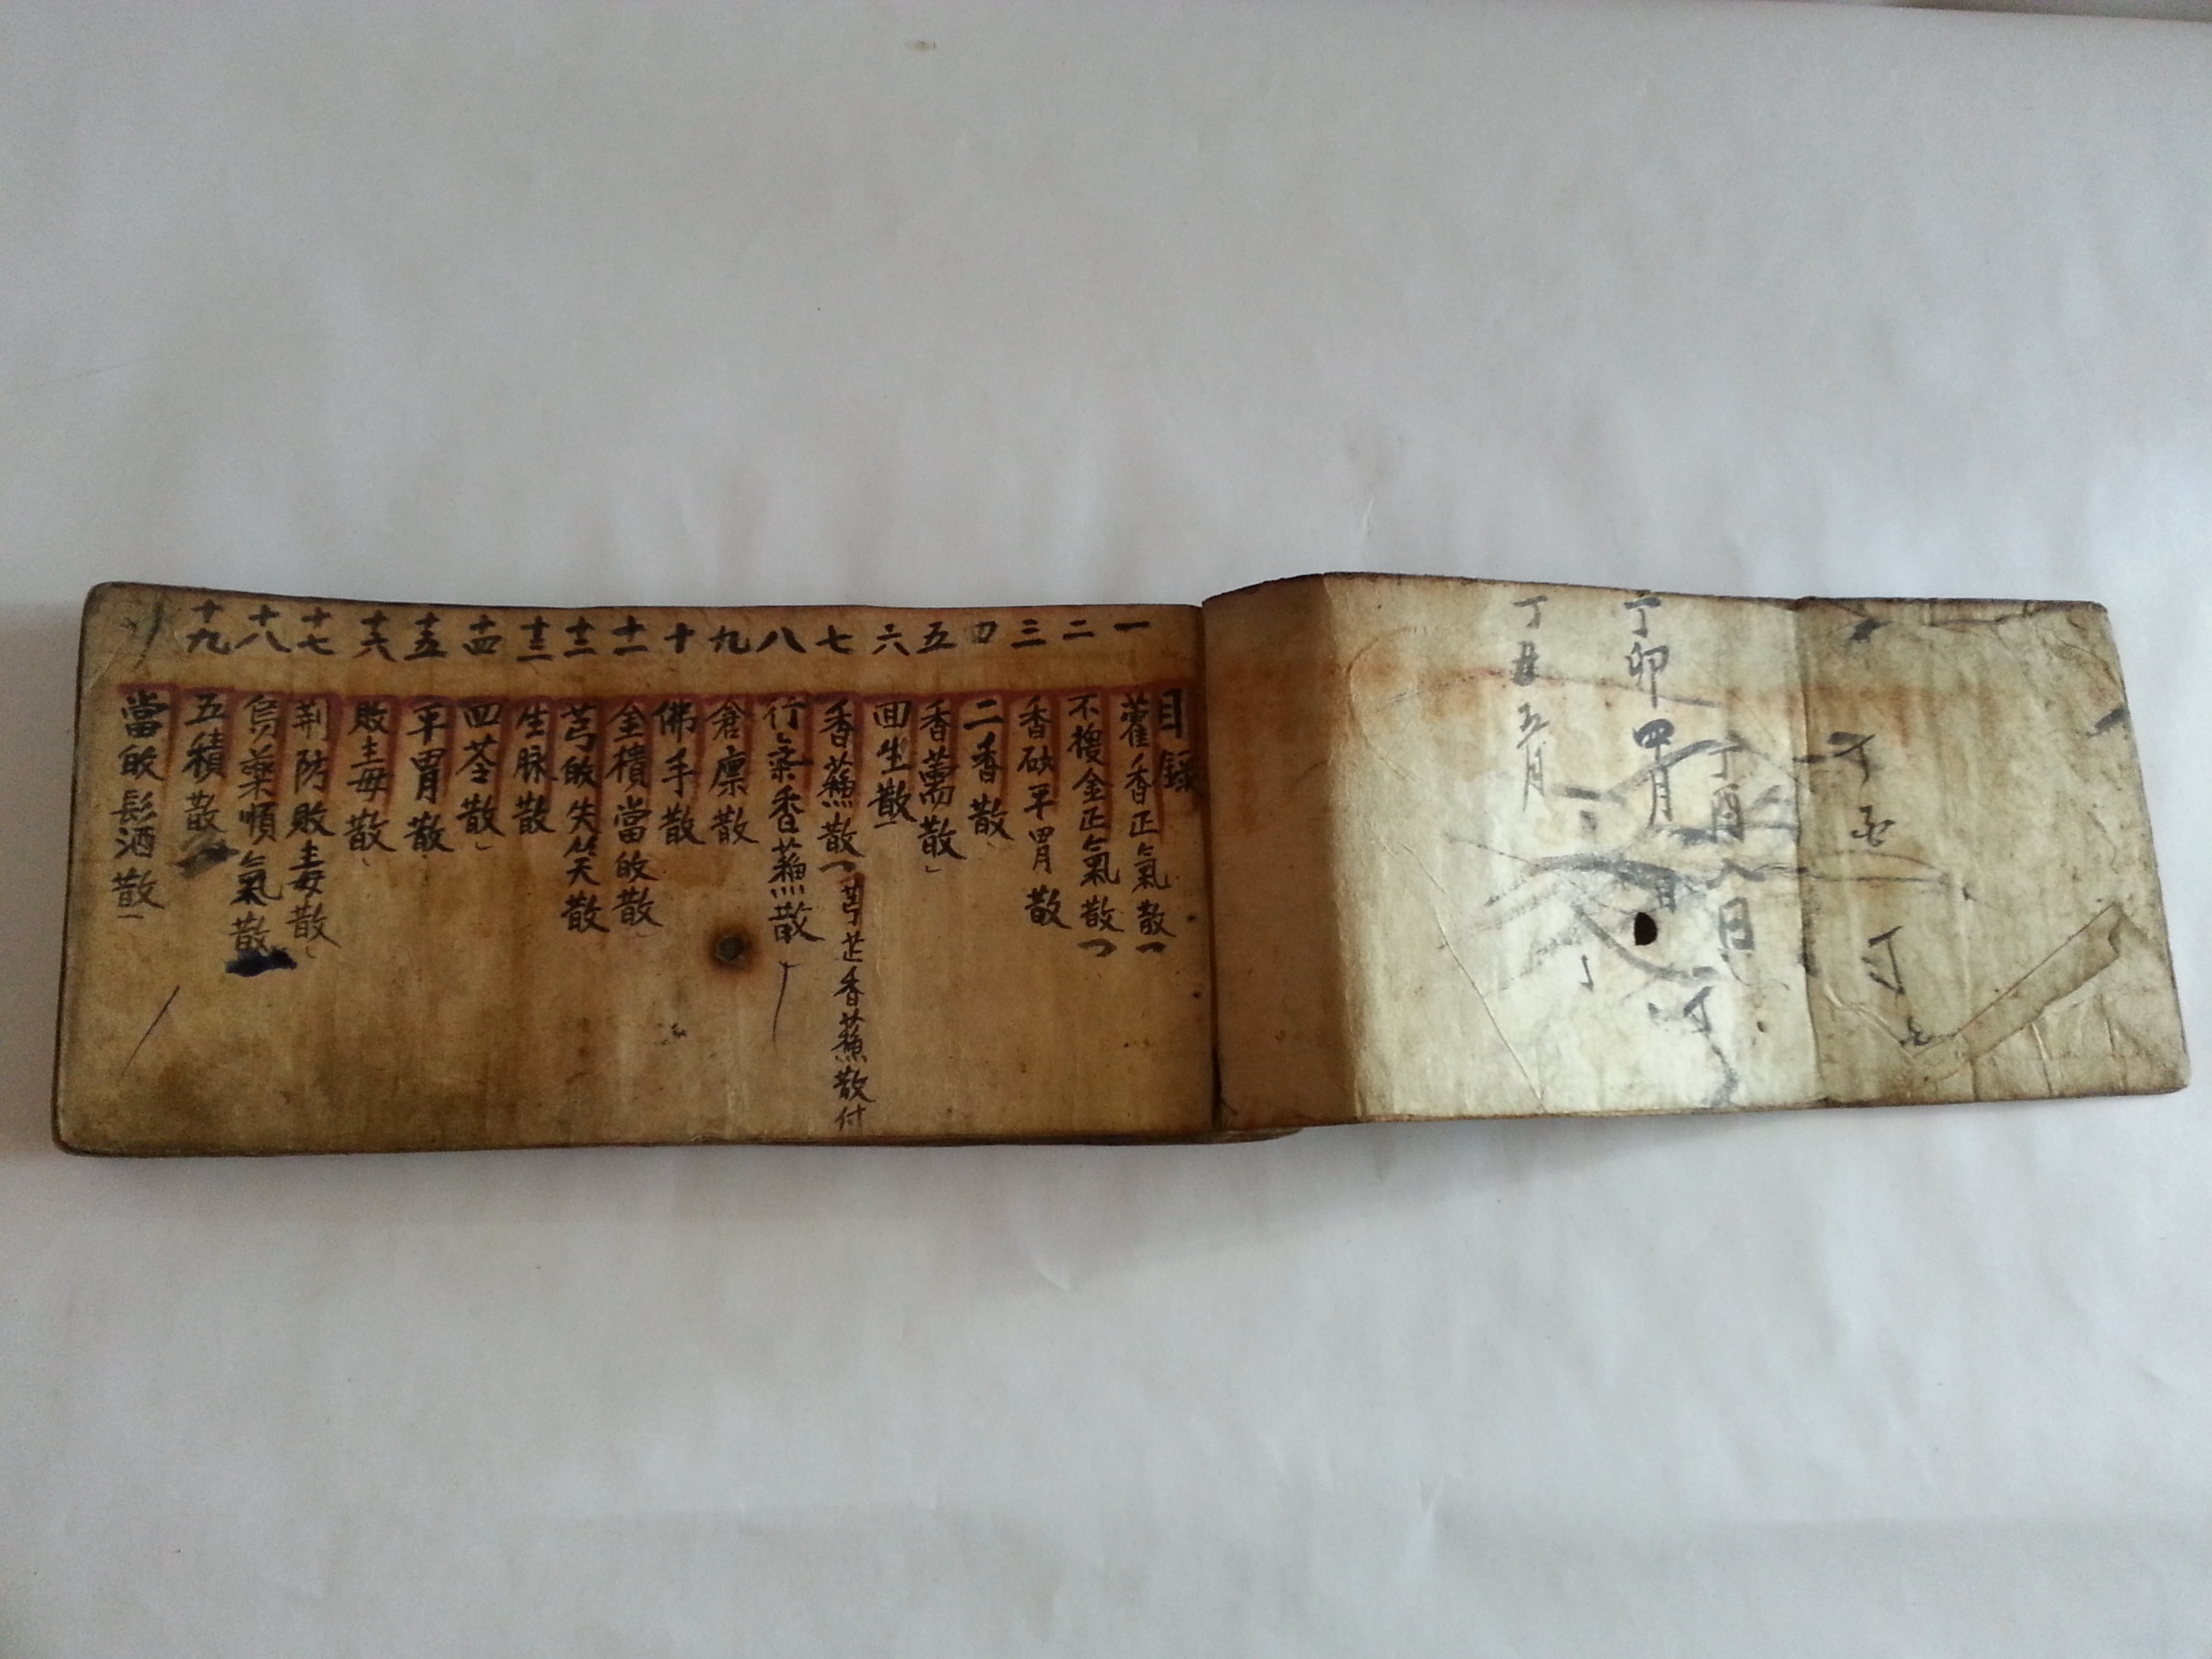 丁酉八日
丁卯四月
丁丑五月
目録
一 藿香正氣散
二 不換金正氣散
三 香砂平胃散
四 二香散
五 香薷散
六 回生散
七 香蘇散 芎芷香蘇散付
八 行氣香蘇散
九 倉廩散
十 佛手散
十一 當皈散
十二 芎皈失笑散
十三 生脉散
十四 四苓散
十五 平胃散
十六 敗毒散
十七 荊防敗毒散
十八 烏藥順氣散
十九 五積散
當皈酒散